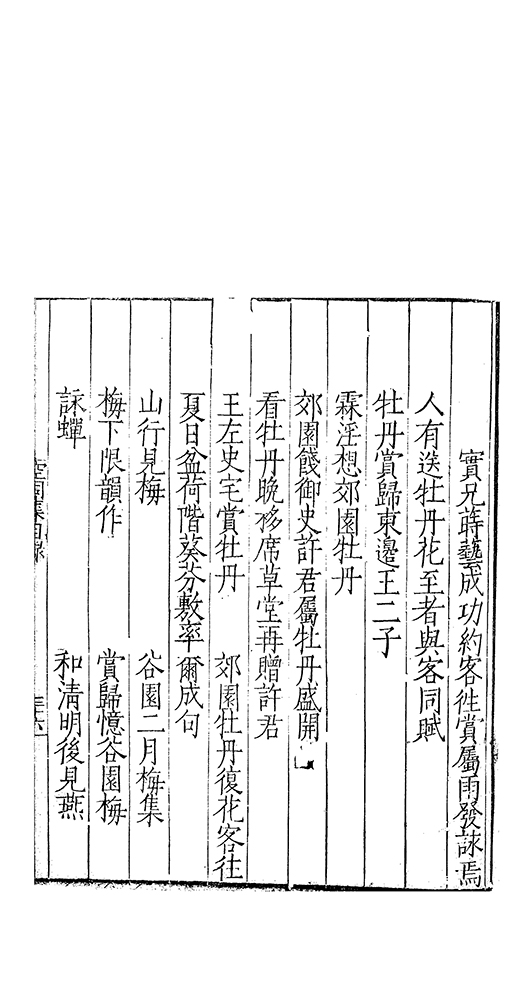 實兄蒔藝成功約客徃賞屬雨發詠焉
人有送牡丹花至者與客同賦
牡丹賞歸東邊王二子
霖淫想郊園牡丹
郊園餞御史許君屬牡丹盛開
看牡丹晚移席草堂再贈許君
王左史宅賞牡丹 郊園牡丹復花客往
夏日盆荷階葵芬敷率爾成句
山行見梅 谷園二月梅集
梅下限韻作 賞歸憶谷園梅
詠蟬 和清明後見燕
空同集目錄